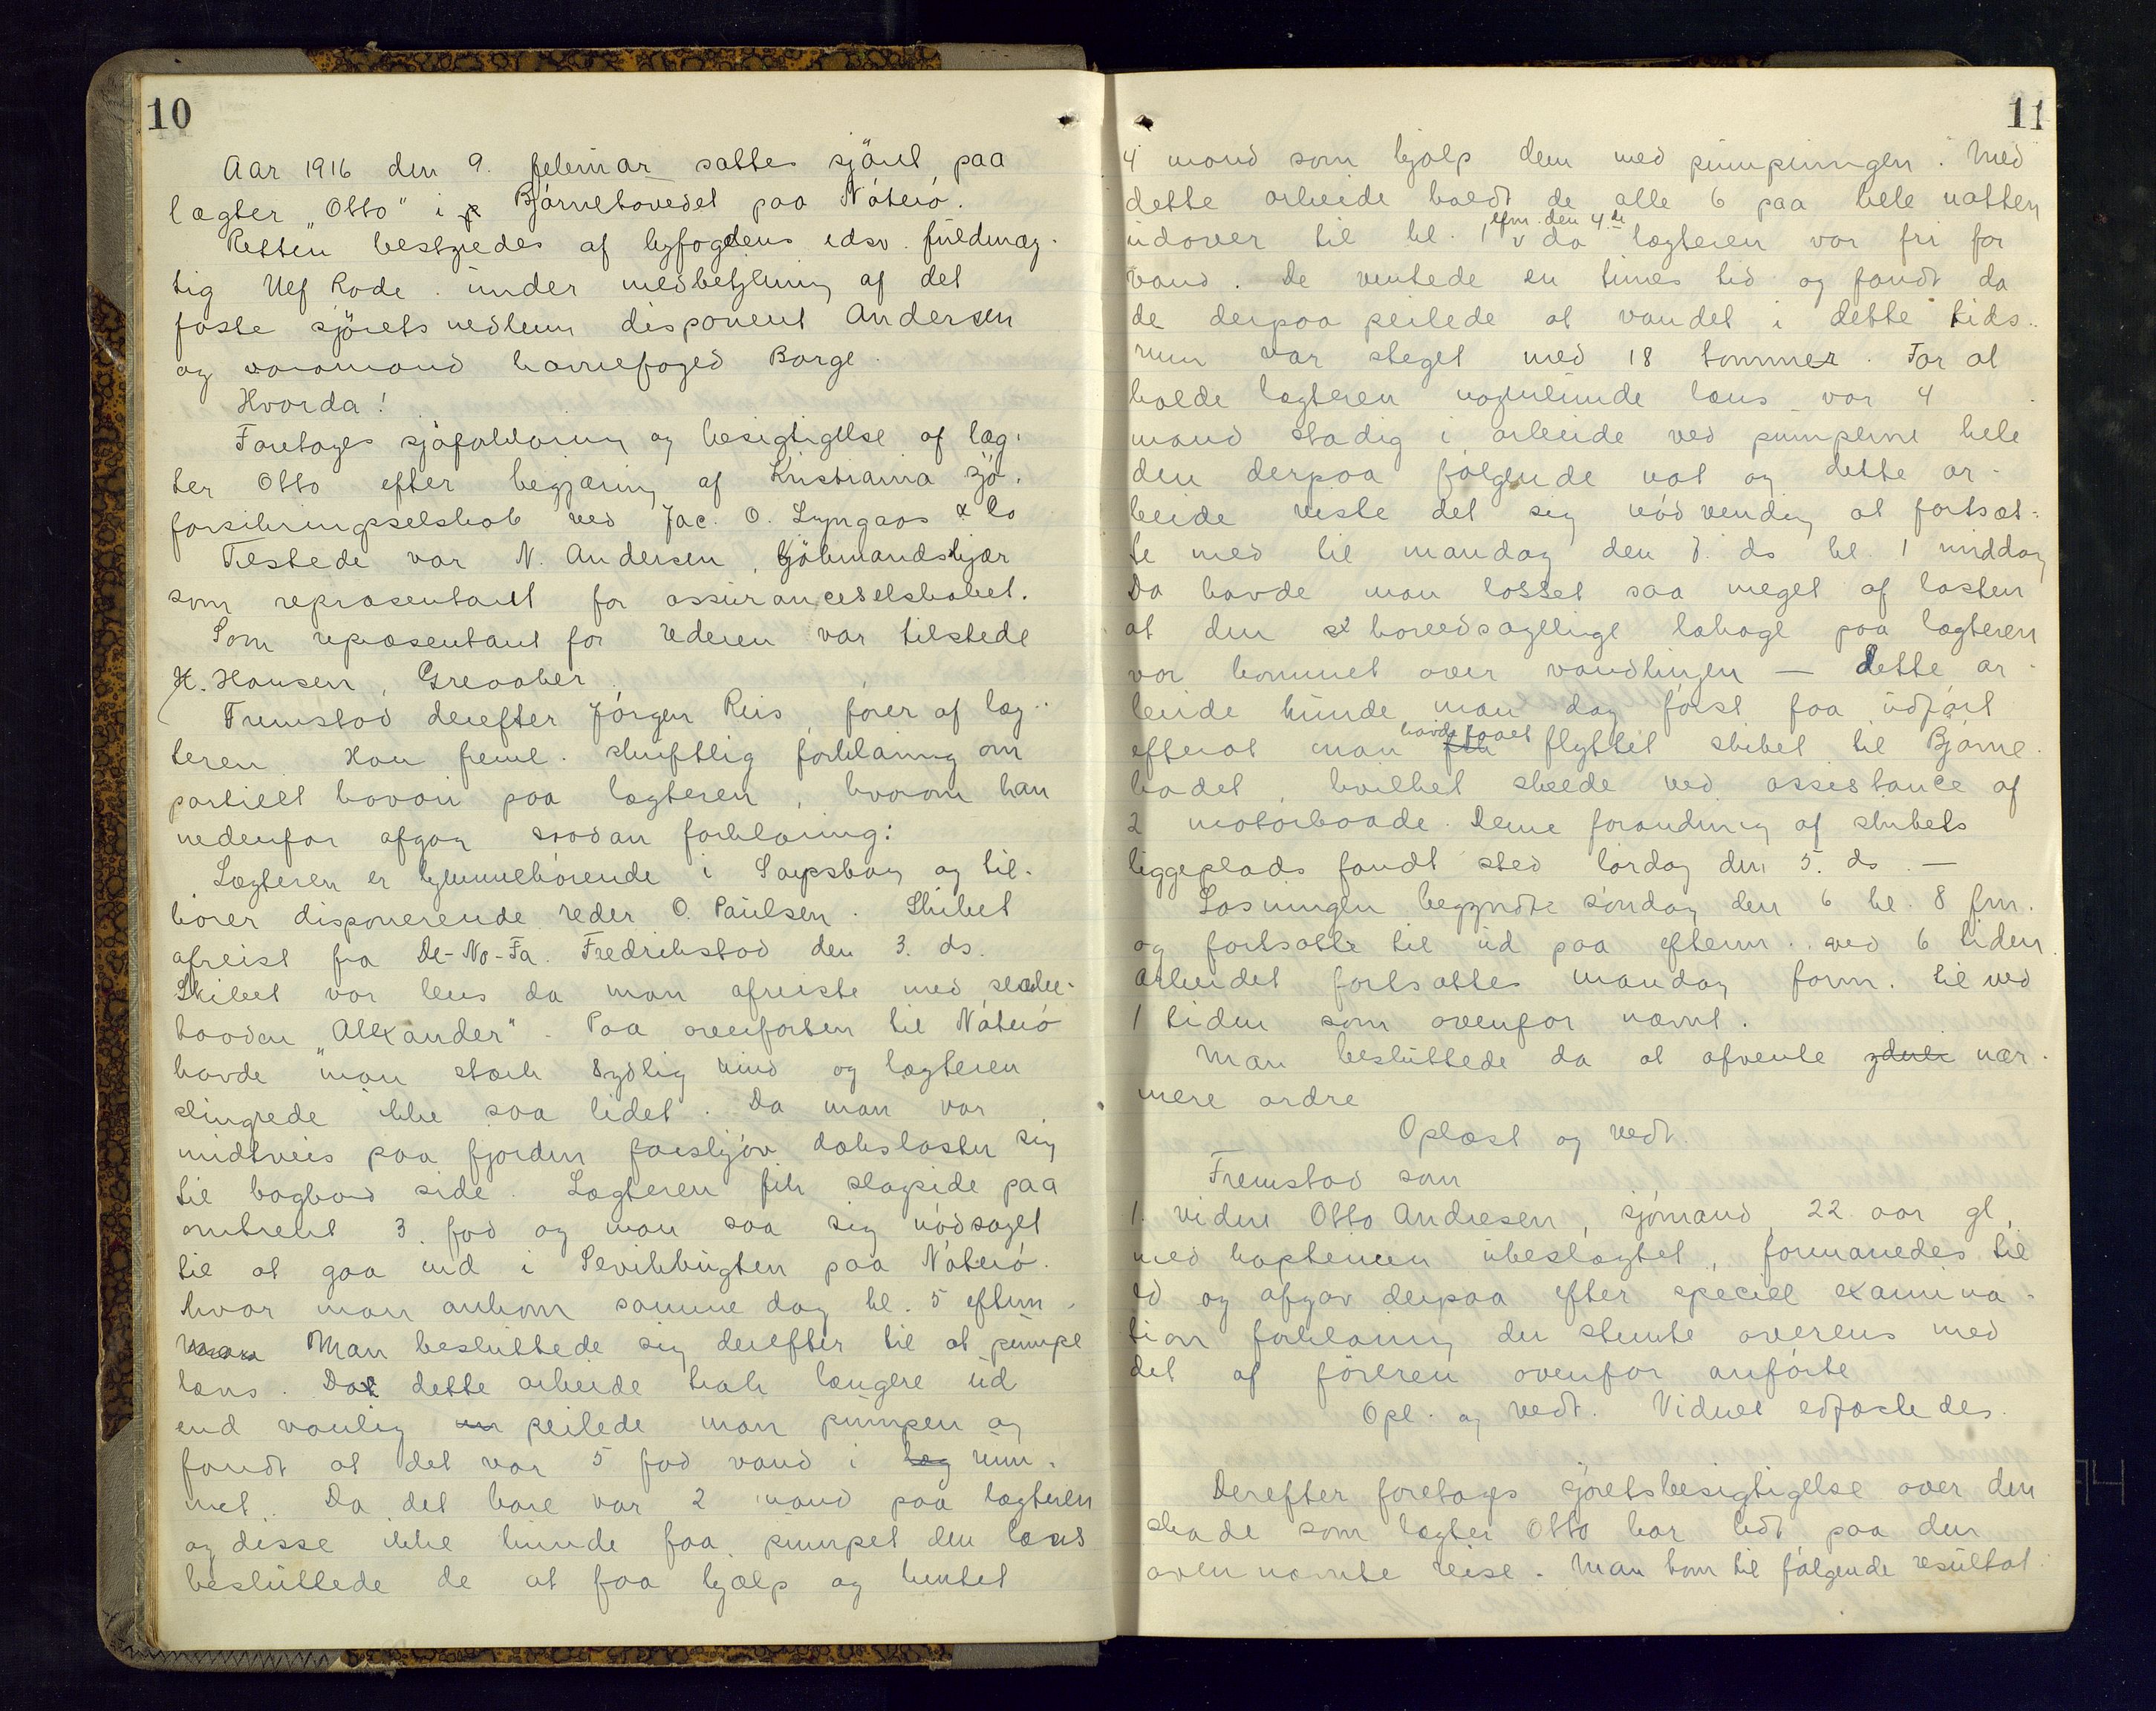 10
Aar 1916 den 9. februar sattes sjöret paa
lægter „Otto" i Bjørnehovedet paa Nöterö.
Retten bestyredes af byfogdens edsv. fuldmæg-
tig Ulf Rode under medbetjening af det
faste sjöretsmedlem disponent Andersen
og varamand havnefoged Borge.
Hvorda!
Foretoges sjöforklaring og besigtigelse af læg-
ter Otto efter begjæring af Kristiania Sjö-
forsikringsselskab ved Jac. O. Lyngaas & Co
Tilstede var N. Andersen, Kjöbmandskjær
som repræsentant for assuranceselskabet.
Som repræsentant for rederen var tilstede
H. Hansen, Greaaker
Fremstod derefter Jörgen Riis förer af læg-
teren. Han freml. skriftlig forklaring om
partielt havari paa lægteren, hvorom han
nedenfor afgav saadan forklaring:
Lægteren er hjemmehörende i Sarpsborg og til-
hörer disponerende reder O. Paulsen. Skibet
afreist fra De-No-Fa. Fredrikstad den 3. ds.
Skibet var lens da man afreiste med slæbe-
baaden „Alexander". Paa overfarten til Nöterö
havde man stærk sydlig vind og lægteren
slingrede ikke saa lidet. Da man var
midtveis paa fjorden forskjöv dækslasten sig
til bagbord side. Lægteren fik slagside paa
omtrent 3 fod og man saa sig nödsaget
til at gaa ind i Sevikbugten paa Nöterö.
hvor man ankom samme dag kl. 5 efterm.
Man besluttede sig derefter til at pumpe
læns. Da dette arbeide trak længere ud
end vanlig peilede man pumpen og
fandt at det var 5 fod vand i læg rum-
met. Da det bare var 2 mand paa lægteren
og disse ikke kunde faa pumpet den læns
besluttede de at faa hjælp og hentet
11
4 mand som hjalp dem med pumpningen. Med
dette arbeide holdt de alle 6 paa hele natten
efm. den 4.de
udover til kl. 1 v da lægteren var fri for
vand. De ventede en times tid og fandt da
de derpaa peilede at vandet i dette tids-
rum var steget med 18 tommer. For at
holde lægteren nogenlunde læns var 4
mand stadig i arbeide ved pumperne hele
den derpaa fölgende nat og dette ar-
beide viste det sig nödvendig at fortsæt-
te med til mandag den 7. ds kl. 1 middag
Da havde man losset saa meget af lasten
at den hovedsagelige lækage paa lægteren
var kommet over vandlinjen — dette ar-
beide kunde man dog först faa udfört
havde faaet
efterat man fik flyttet skibet til Bjørne-
hodet, hvilket skeede ved assistance af
2 motorbaade. Denne forandring af skibets
liggeplads fandt sted lördag den 5. ds. —
Losningen begyndte söndag den 6 kl. 8 fm.
og fortsatte til ud paa efterm. ved 6 tiden.
Arbeidet fortsattes mandag form. til ved
1 tiden som ovenfor nævnt.
Man besluttede da at afvente nær-
mere ordre
Oplæst og vedt.
Fremstod som
1. vidne Otto Andresen, sjömand, 22 aar gl,
med kapteinen ubeslægtet, formanedes til
ed og afgav derpaa efter speciel examina-
tion forklaring der stemte overens med
det af föreren ovenfor anförte
Opl. og vedt. Vidnet edfæstedes.
Derefter foretoges sjöretsbesigtigelse over den
skade som lægter Otto har lidt paa den
ovennævnte reise. Man kom til fölgende resultat